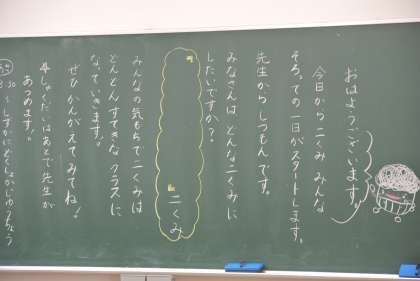 おはようございます。
今日から二くみみんな
そろっての一日がスタートします。
先生からしつもんです。
みなさんは どんな二くみに
したいですか?
二くみ
みんなの気もちで二くみは
どんどんすてきなクラスに
なっていきます。
ぜひかんがえてみてね!
※しゅくだいはあとで先生が
あつめます!